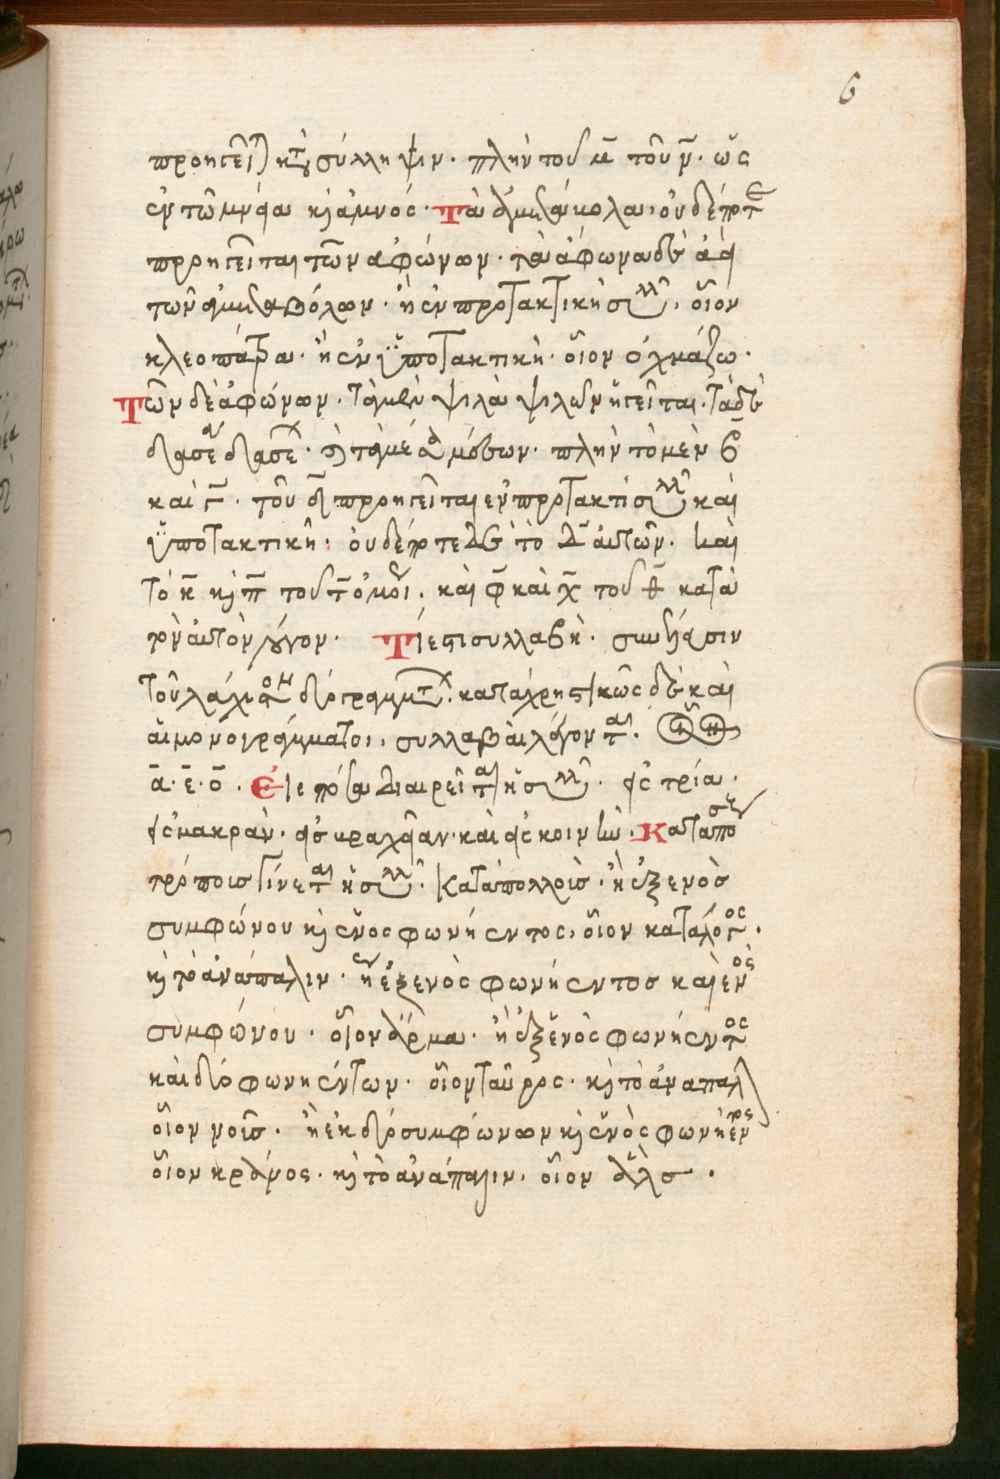 6
προηγεῖται κατὰ σύλληψιν· πλὴν τοῦ μ̄ τοῦ ν̄· ὡς
ἐν τῶ μνάα κὶ ἀμνός· Τὰ δὲ οὐδέποτε
προηγεῖται τῶν ἀφώνων· τὰ ἄφωνα δὲ ἀεὶ
τῶν ἀμεταβόλων· ἢ ἐν προτακτικῆ συλλ· οἷον
κλεοπάτρα· ἢ ἐν ὑποτακτικῆ· οἷον ὀχμάζω·
Τῶν δὲ ἀφώνων· τὰ μὲν ψιλὰ ψιλῶν ἡγεῖται· τὰ δὲ
δασέα δασέων· τὰ μέσα μέσων· πλὴν τὸ μὲν β̄
καὶ γ̄· τοῦ δ̄ προηγεῖται ἐν προτακτι συλλ καὶ
ὑποτακτικῆ· οὐδέποτε δὲ τὸ δ̄ αὐτῶν· καὶ
τὸ κ̄ κὶ π̄ τοῦ τ̄ ὁμοί· καὶ φ̄ καὶ χ̄ τοῦ θ̄ κατὰ
τὸν αὐτὸν λόγον· Τί ἐστι συλλαβὴ· σύνθεσιν
τοὐλάχιστον δύο γραμμάτων· καταχρηστικῶς δὲ καὶ
αἱ μονογράμματοι, συλλαβαὶ λέγονται·
ᾱ· ε̄· ο̄· Εἰς πόσα διαιρεῖται ἡ συλλ· εἰς τρία·
εἰς μακρὰν· εἰς βραχεῖαν· καὶ εἰς κοινὴν· Κατὰ πόσους
τρόπους γίνεται ἡ συλλ· Κατὰ πολλοὺς· ἢ ἐξ ἑνὸς
συμφώνου κὶ ἑνὸς φωνήεντος, οἷον κατάλογος·
κὶ τὸ ἀνάπαλιν· ἢ ἐξ ἑνὸς φωνήεντος καὶ ἑνὸς
συμφώνου· οἷον ἅρμα· ἢ ἐξ ἑνὸς φωνήεντος
καὶ δύο φωνηέντων· οἷον ταῦρος· κὶ τὸ ἀνάπαλιν
οἷον νοῦς· ἢ ἐκ δύο συμφώνων κὶ ἑνὸς φωνήεντος
οἷον κράνος· κὶ τὸ ἀνάπαλιν, οἷον ἅλς·